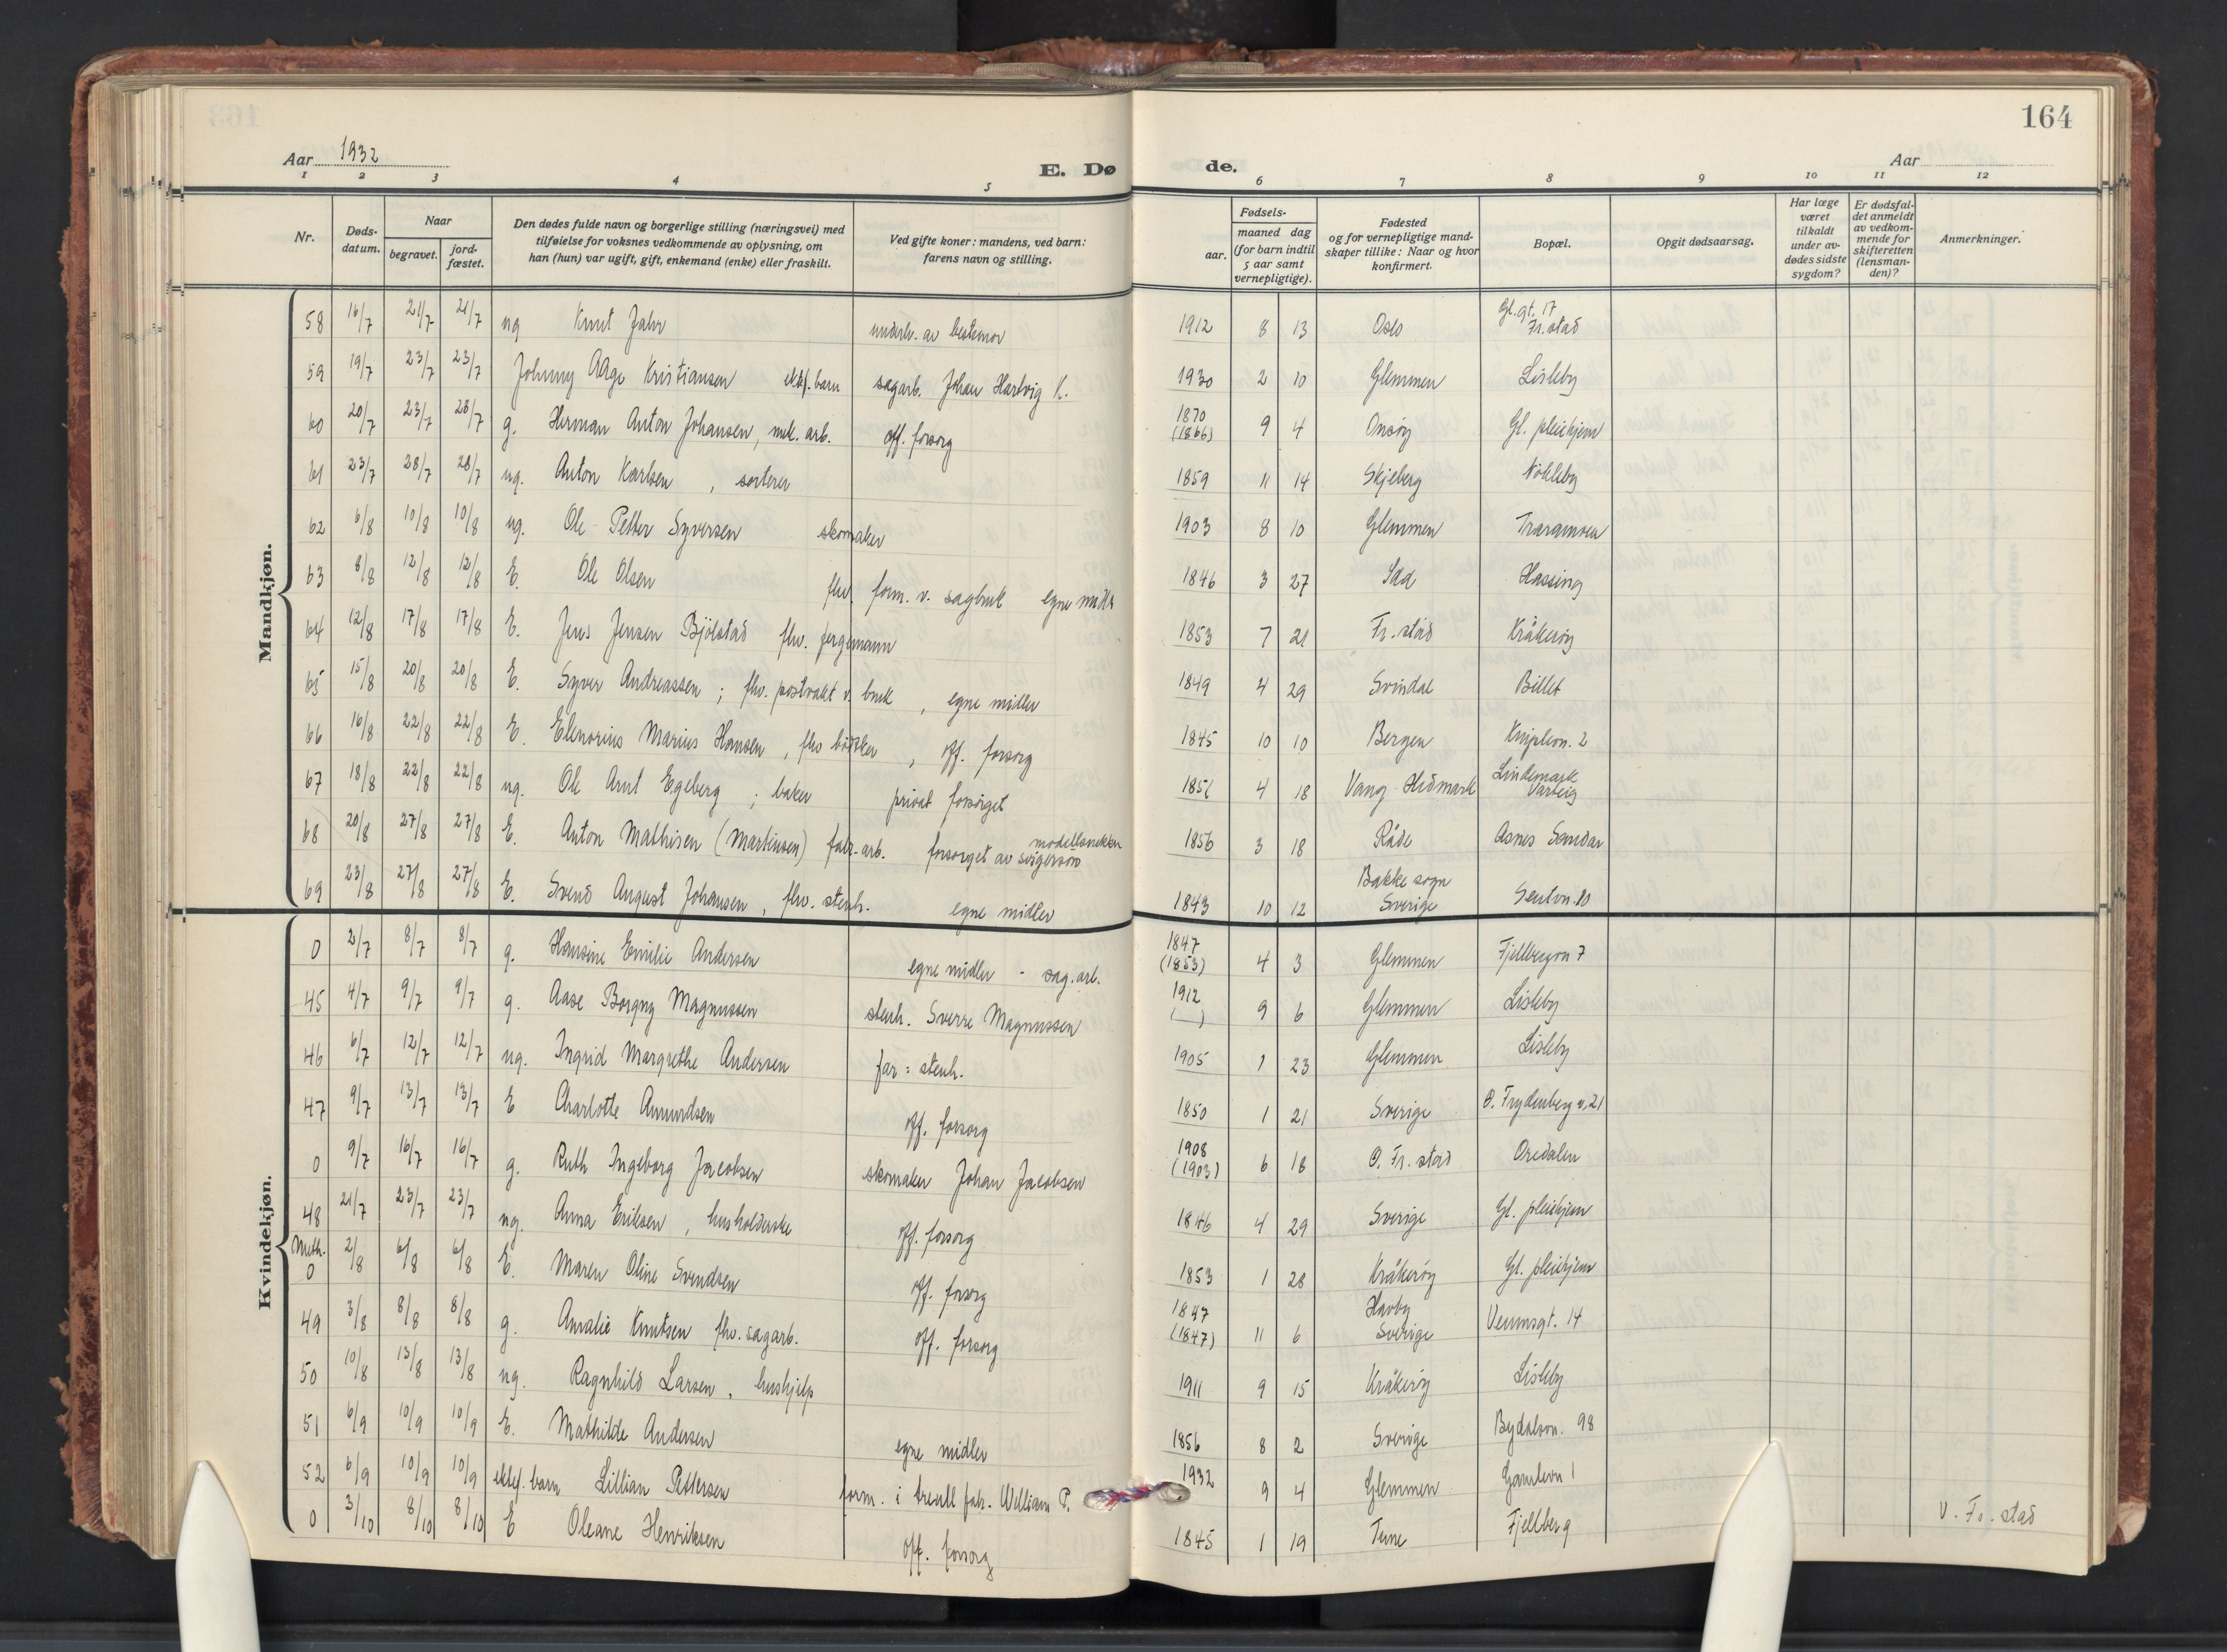 163
164
Aar 1932
E. Dø
de.
Aar
1 2 3 4 5 6 7 8 9 10 11 12
Nr.
Døds-
datum.
Naar
begravet.
jord-
fæstet.
Den dødes fulde navn og borgerlige stilling (næringsvei) med
tilføielse for voksnes vedkommende av oplysning, om
han (hun) var ugift, gift, enkemand (enke) eller fraskilt.
Ved gifte koner: mandens, ved barn:
farens navn og stilling.
Fødsels-
aar.
maaned dag
(for barn indtil
5 aar samt
vernepligtige).
Fødested
og for vernepligtige mand-
skaper tillike: Naar og hvor
konfirmert.
Bopæl.
Opgit dødsaarsag.
Har læge
været
tilkaldt
under av-
dødes sidste
sygdom?
Er dødsfal-
det anmeldt
av vedkom-
mende for
skifteretten
(lensman-
den)?
Anmerkninger.
Mandkjøn.
58 16/7 21/7 21/7 ug Knut Jahr underh. av bestemor 1912 8 13 Oslo Gl.gt. 17 Fr.stad
59 19/7 23/7 23/7 Johnny Aage Kristiansen ektf. barn sagarb. Johan Hartvig K. 1930 2 10 Glemmen Lisleby
60 20/7 23/7 23/7 g. Herman Anton Johansen, mek. arb. off. forsorg 1870 (1866) 9 4 Onsøy Gl. pleiehjem
61 23/7 28/7 28/7 ug. Anton Karlsen, sorterer 1859 11 14 Skjeberg Nökleby
62 6/8 10/8 10/8 ug. Ole Petter Syversen skomaker 1903 8 10 Glemmen Traraveien
63 8/8 12/8 12/8 E. Ole Olsen fhv. form. v. sagbruk egne midler 1846 3 27 Idd Hassing
64 12/8 17/8 17/8 E. Jens Jensen Bjölstad fhv. fergemann 1853 7 21 Fr.stad Kråkeröy
65 15/8 20/8 20/8 E. Syver Andreassen; fhv. postvakt v. bruk, egne midler 1849 4 29 Svindal Billet
66 16/8 22/8 22/8 E. Elenorius Marius Hansen, fhv bökker, off. forsorg 1845 10 10 Bergen Kniplen. 2
67 18/8 22/8 22/8 ug. Ole Arnt Egeberg; baker privat forsörget 1856 4 18 Vang Hedmark Lindemark Varteig
68 20/8 27/8 27/8 E. Anton Mathisen (Martinsen) fabr. arb. forsorget av modellsnekker svigersönn 1856 3 18 Råde Asnes Sandar
69 23/8 27/8 27/8 E. Svend August Johansen, fhv. stenh. egne midler 1843 10 12 Bakke sogn Sverige Senton. 10
Kvindekjøn.
0 2/7 8/7 8/7 g. Hansine Emilie Andersen egne midler - sag.arb. 1847 (1853) 4 3 Glemmen Fjellbergvn 7
45 4/7 9/7 9/7 g. Aase Borgny Magnussen stenh. Sverre Magnussen 1912 ( — ) 9 6 Glemmen Lisleby
46 6/7 12/7 12/7 ug. Ingrid Margrethe Andersen far: stenh. 1905 1 23 Glemmen Lisleby
47 9/7 13/7 13/7 E Charlotte Amundsen off. forsorg 1850 1 21 Sverige Ö. Frydenberg v. 21
0 9/7 16/7 16/7 g. Ruth Ingeborg Jacobsen skomaker Johan Jacobsen 1908 (1903) 6 18 Ö. Fr.stad Oredalen
48 21/7 23/7 23/7 ug. Anna Eriksen, husholderske off. forsorg 1846 4 29 Sverige Gl. pleiehjem
Meth. 0 2/8 6/8 6/8 E. Maren Oline Svendsen off. forsorg 1853 1 28 Kråkeröy Gl. pleiehjem
49 3/8 8/8 8/8 g. Amalie Knutsen fhv. sagarb. off. forsorg 1847 (1847) 11 6 Havby Sverige Vennsgt. 14
50 10/8 13/8 13/8 ug. Ragnhild Larsen, hushjelp 1911 9 15 Kråkeröy Lisleby
51 6/9 10/9 10/9 E. Mathilde Andersen egne midler 1856 8 2 Sverige Bydalsvn. 98
52 6/9 10/9 10/9 ektef. barn Lillian Pettersen form. i treull fab. William P. 1932 9 4 Glemmen Gamlevn 1
0 3/10 8/10 8/10 E Oleane Henriksen off. forsorg 1845 1 19 Tune Fjellberg V. Fr. stad